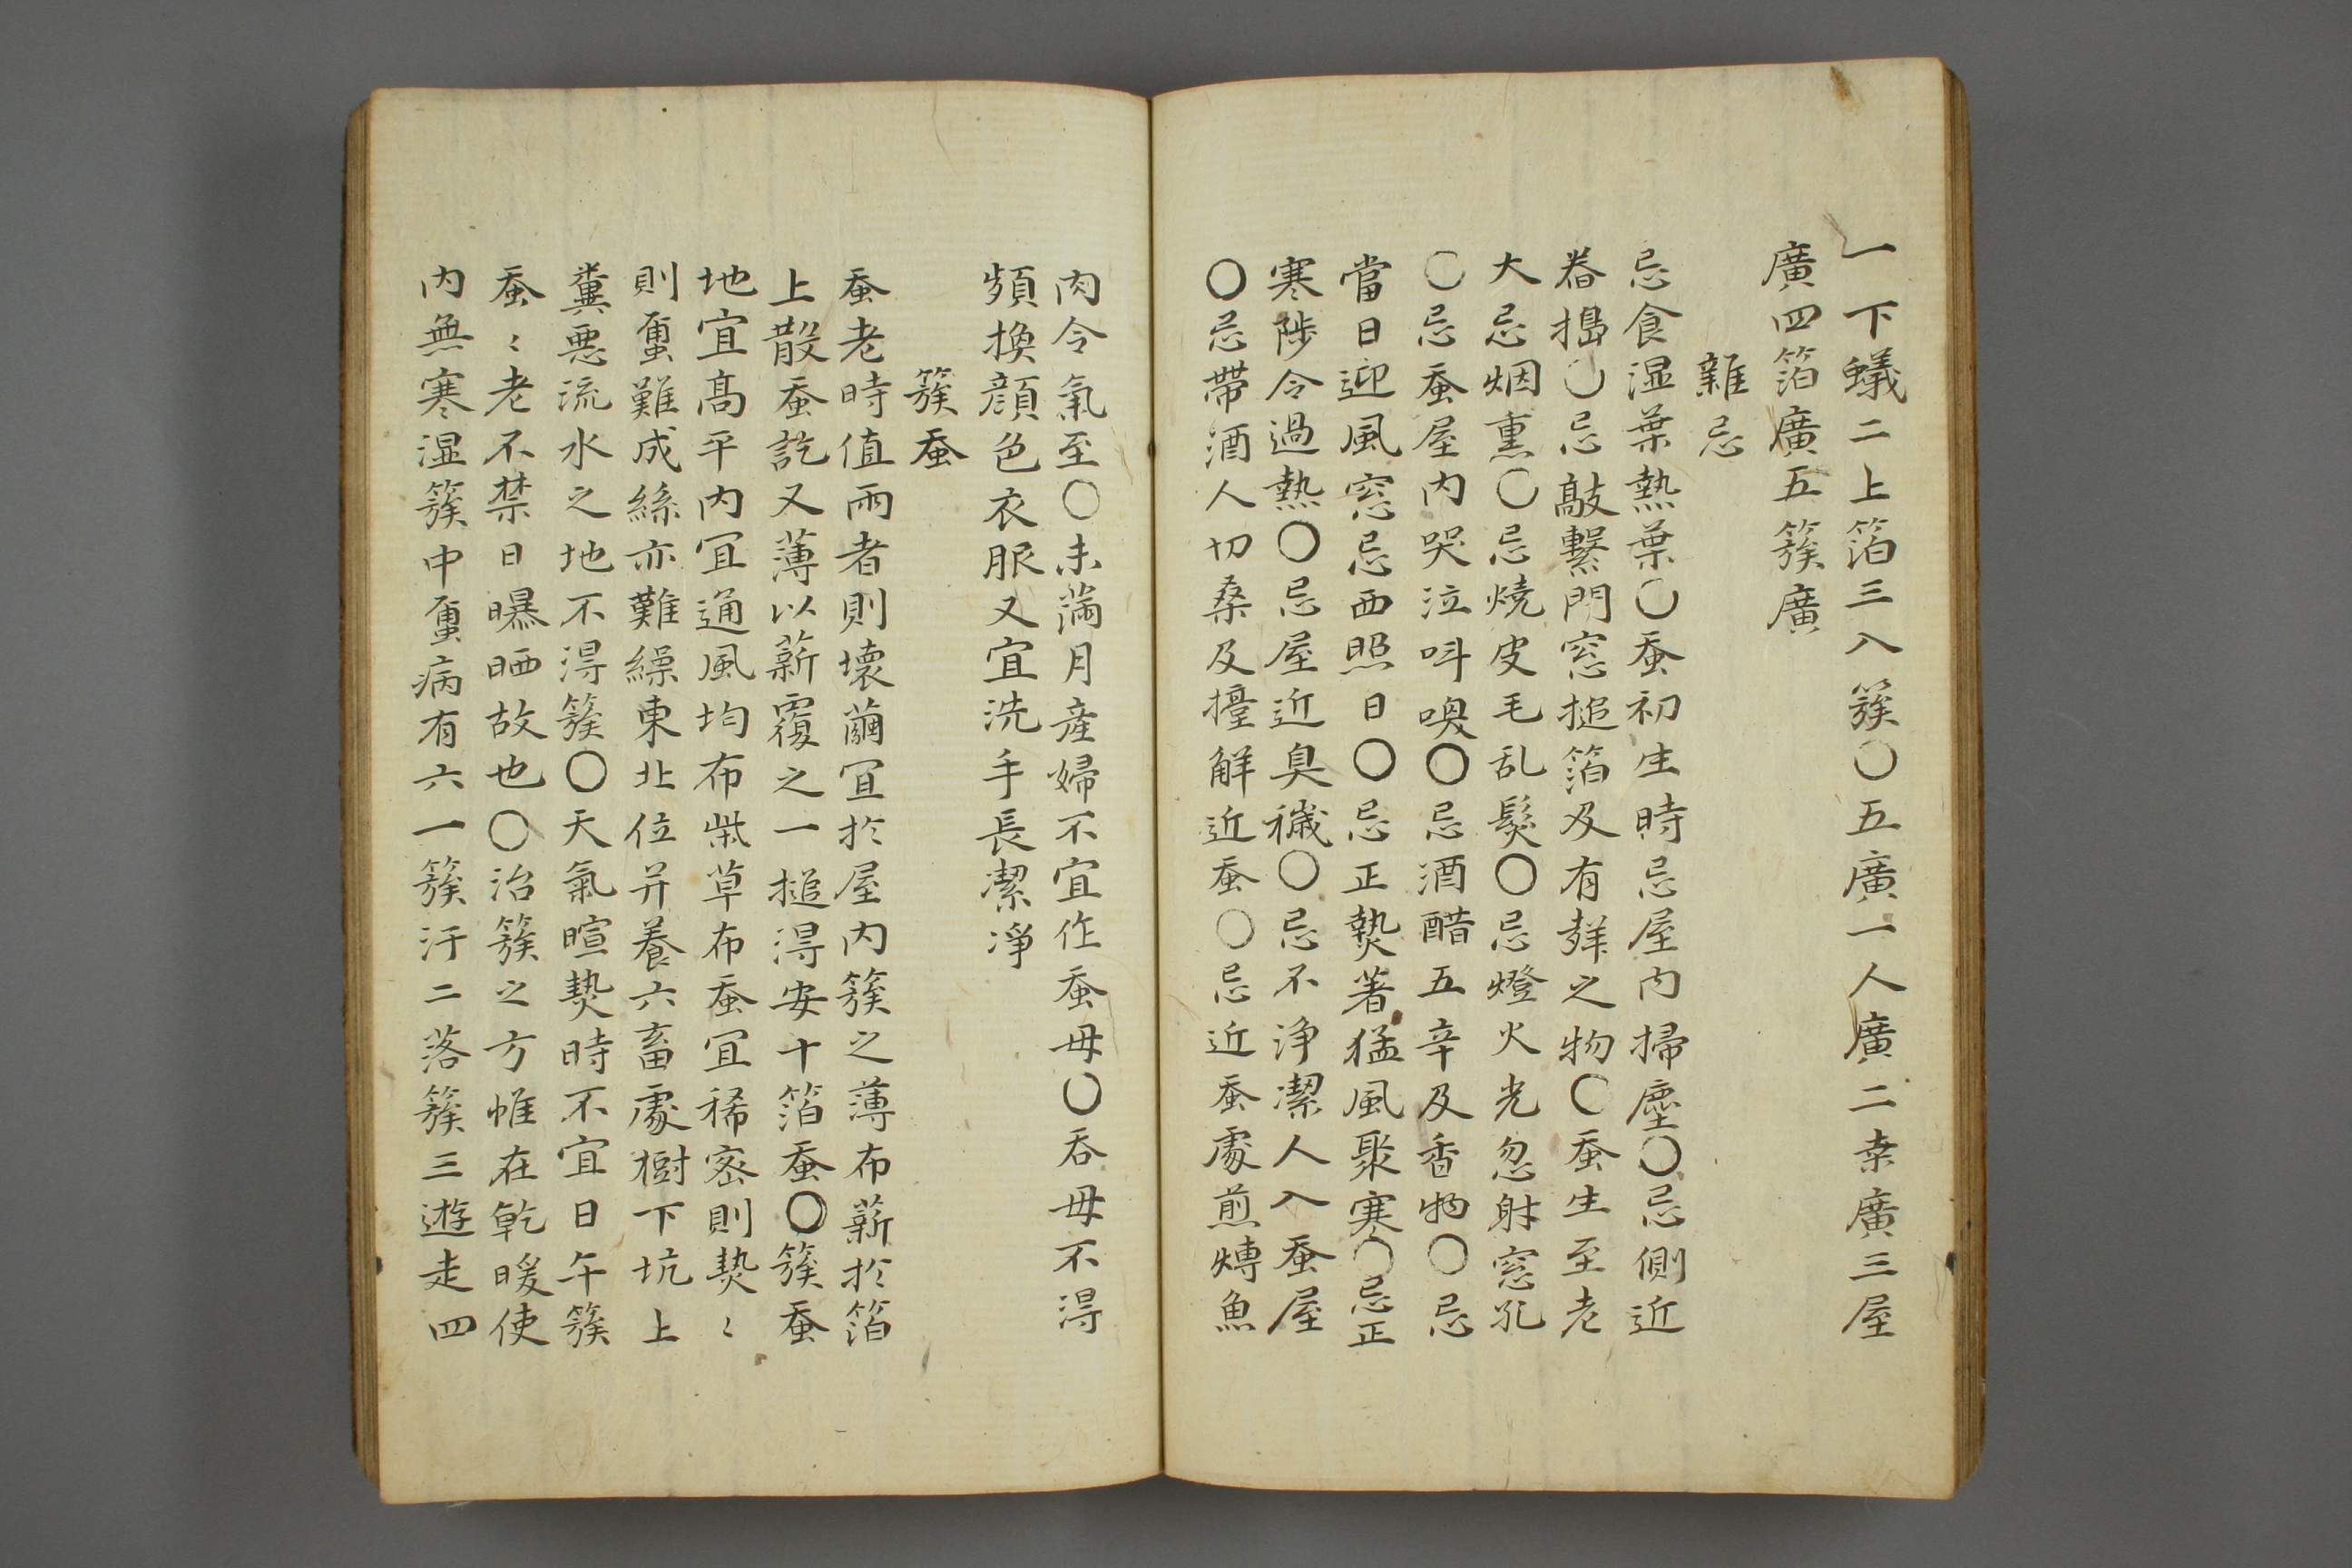 一下蟻二上箔三入簇〇五廣一人廣二桒廣三屋
廣四箔廣五簇廣
雜忌
忌食湿葉熱葉〇蚕初生時忌屋内掃塵〇忌側近
舂搗〇忌敲擊門窓搥箔及有聲之物〇蚕生至老
大忌烟熏〇忌燒皮毛乱髮〇忌燈火光忽射窓孔
〇忌蚕屋内哭泣呌㗛〇忌酒醋五辛及香物〇忌
當日迎風窓忌西照日〇忌正熱著猛風聚寒〇忌正
寒陡令過熱〇忌屋近臭穢〇忌不净潔人入蚕屋
〇忌帶酒人切桑及擡解近蚕〇忌近蚕處煎煿魚
肉令氣至〇未滿月産婦不宜作蚕母〇吞母不淂
頻換顔色衣服又宜洗手長潔淨
簇蚕
蚕老時值雨者則壞繭宜於屋内簇之薄布薪於箔
上散蚕訖又薄以薪覆之一搥淂安十箔蚕〇簇蚕
地宜髙平内宜通風均布柴草布蚕宜稀宻則熱〻
則蠒難成絲亦難繰東北位并養六畜處樹下坑上
糞悪流水之地不淂簇〇天氣暄熱時不宜日午簇
蚕〻老不禁日曝晒故也〇治簇之方惟在乾暖使
内無寒湿簇中蠒病有六一簇汗二落簇三遊走四